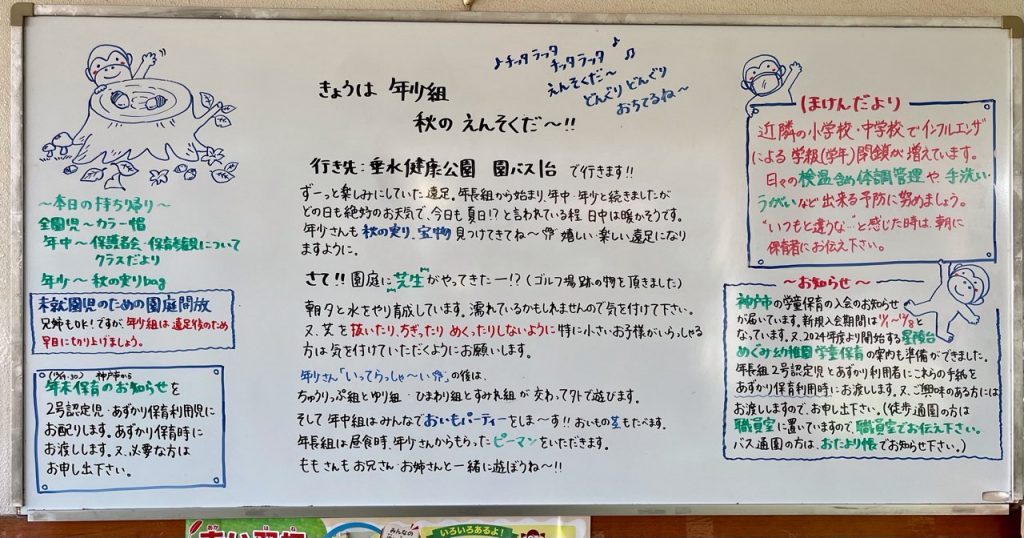 ♪チッタ ラッタ ♪
チッタ ラッタ ♫
えんそくだ〜
どんぐり どんぐり
おちてるね〜
きょうは 年少組
秋の えんそくだ〜!!
行き先:垂水健康公園 園バス1台 で行きます!!
ずーっと楽しみにしていた遠足。年長組から始まり、年中・年少と続きましたが
どの日も絶好のお天気で、今日も夏日!?と言われている程 日中は暖かそうです。
年少さんも 秋の実り、宝物 見つけてきてね〜 嬉しい・楽しい遠足になり
ますように。
さて!! 園庭に“芝生”がやってきたー!?(ゴルフ場跡の物を頂きました)
朝夕と水をやり育成しています。濡れているかもしれませんので気を付けて下さい。
又、芝を 抜いたり、ちぎったり めくったりしないように 特に小さいお子様がいらっしゃる
方は気を付けていただくようにお願いします。
年少さん「いってらっしゃ〜い」の後は、
ちゅうりっぷ組とゆり組・ひまわり組とすみれ組が 交わって外で遊びます。
そして 年中組はみんなでおいもパーティーをしま〜す!! おいもの茎もたべます。
年長組は昼食時、年少さんからもらったピーマンをいただきます。
ももさんもお兄さん・お姉さんと一緒に遊ぼうね〜!!
〜本日の持ち帰り〜
全園児〜カラー帽
年中〜保護者会・保育参観について
クラスだより
年少〜秋の実りbag
未就園児のための園庭開放
兄姉もOK!ですが、年少組は遠足後のため
早目に切り上げましょう。
神戸市から
年末保育のお知らせを
2号認定児・あずかり保育利用児に
お配りします。あずかり保育時に
お渡しします。又、必要な方は
お申し出下さい。
ほけんだより
近隣の小学校・中学校でインフルエンザ
による 学級(学年)閉鎖が増えています。
日々の検温含め体調管理や、手洗い・
うがいなど出来る予防に努めましょう。
“いつもと違うな…”と感じた時は、朝に
保育者にお伝え下さい。
〜お知らせ〜
神戸市の学童保育の入会のお知らせ
が届いています。新規入会期間は11/1〜12/8と
なっています。又、2024年度より開始する星陵台
めぐみ幼稚園学童保育の案内も準備ができました。
年長組2号認定児とあずかり利用者にこれらの手紙を
あずかり保育利用時にお渡しします。又、ご興味のある方には
お渡ししますので、お申し出下さい。(徒歩通園の方は
職員室に置いていますので、職員室でお伝え下さい。
バス通園の方は、おたより帳でお知らせ下さい。)
いろいろあるよ!